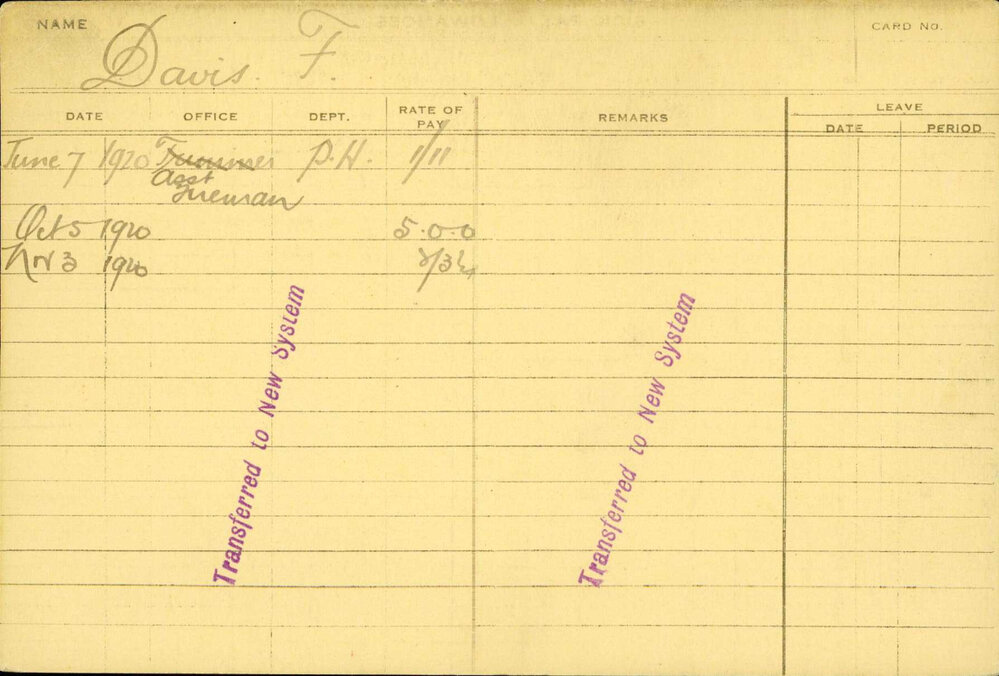 NAME
Davis. F.
CARD NO.
DATE OFFICE DEPT. RATE OF PAY REMARKS LEAVE
DATE PERIOD
June 7 1920 Trimmer P.H. 1/11
Asst
Fireman
Oct 5 1920 5.0.0
Nov 3 1920
Transferred to New System
Transferred to New System